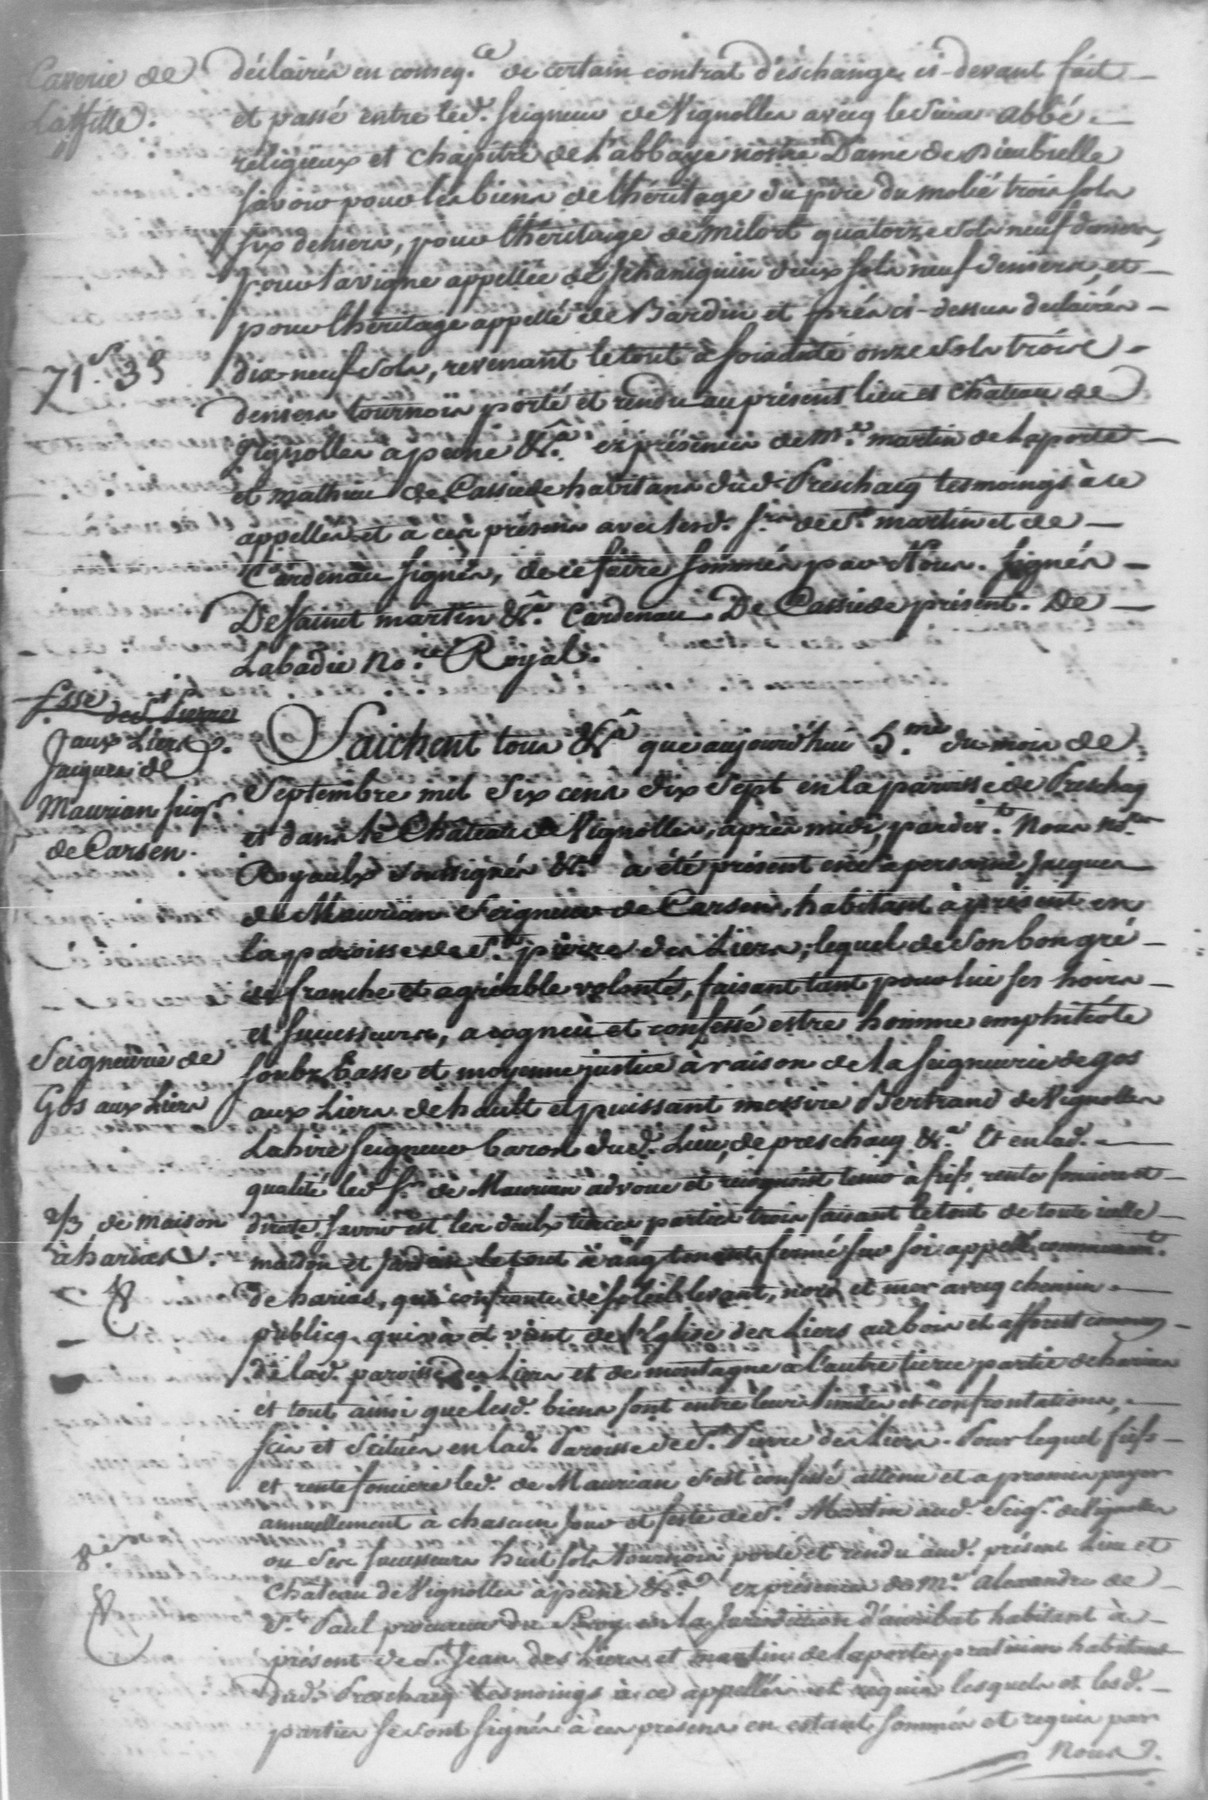 Caverie de
Lahitte.
déclairés en conseq.ce de certain contrat d'éschange ci-devant fait
et passé entre led. seigneur de Vignolles avecq le sieur abbé
réligieux et chapitre de l'abbaye nostre Dame de
savoir pour les biens de l'héritage du trois sols
six deniers, pour l'héritage de Milort quatorze sols neuf deniers,
pour la vigne appellée de Jehaniquin deux sols neuf deniers, et
pour l'héritage appellé de Bardin et prés ci-dessus declairés
71.s 3d
dix-neuf sols, revenant le tout à soixante onze sols trois
deniers tournois porté et rendu au présent lieu et château de
Vignolles a peine &.a ez présences de M.re martin de Laporte
et mathieu de Cassiede habitans dud. Preschacq tesmoings à ce
appelles et a ces présens avec lesd. s.rs de S.t martin et de
Cardenau signés, de ce faire sommés par Nous. Signés
De saint martin &.a Cardenau. De Cassiede présent. De
Labadie No.re Royal.
de S.t Pierre
aux Liers.
Jacques de
Maurian seig.r
de Carsen.
Saichent tous &.a que aujourd'hui 5.me du mois de
Septembre mil six cens dix sept en la paroisse de Preschaq
et dans le Château de Vignolles, après midi, pardev.t Nous No.res
Royaulx soussignés &.a a été présent en sa personne Jacques
de Maurian Seigneur de Carsen, habitant à présent en
la paroisse de S.t pierre des Liers, lequel de son bon gré
franche et agréable volonté, faisant tant pour lui ses hoirs
et successeurs, a cogneu et confessé estre homme emphitéote
Seigneurie de
Gos aux Liers
soubz basse et moyenne justice à raison de la seigneurie de gos
aux Liers de hault et puissant messire Bertrand de Vignolles
Lahire seigneur baron dud. Lieu, de preschacq &.a Et en lad.
qualité led. s.r de Maurian advoue et recognoist tenir à fiefs rente fonciere et
2/3 de maison
à harias.
dirote savoir est les deulx tierces parties trois faisant le tout de toute icelle
maison et Jardin le tout à ung tenant fermé sur soi appellé communem.t
de harias, qui confronte de soleil levant, nord et mer avecq chemin
publicq qui va et vient de l'Eglise des Liers au bois et afforest commun
de lad. paroisse des Liers et de montagne a l'autre tierce partie de harias
et tout ainsi que lesd. biens sont entre leurs limites et confrontations,
scis et scitués en lad. Paroisse de S.t Pierre des Liers. Pour lequel fiefs
et rente fonciere led. de Maurian s'est confessé attenu et a promis payer
annuellement à chascun Jour et feste de S.t Martin aud. Seig.r de Vignolles
8.s
ou ses successeurs huit sols tournois porté et rendu aud. présent Lieu et
Château de Vignolles à peine &.a ez présences de M.re Alexandre de
S.t Paul procureur du Roy en la Jurisdiction d'auribat habitant à
présent de S.t Jean des Liers et martin de laporte praticien habitans
dud. Preschacq tesmoings à ce appellés et requis lesquels et lesd.
parties se sont signés à ces présens en estant sommés et requis par
Nous.